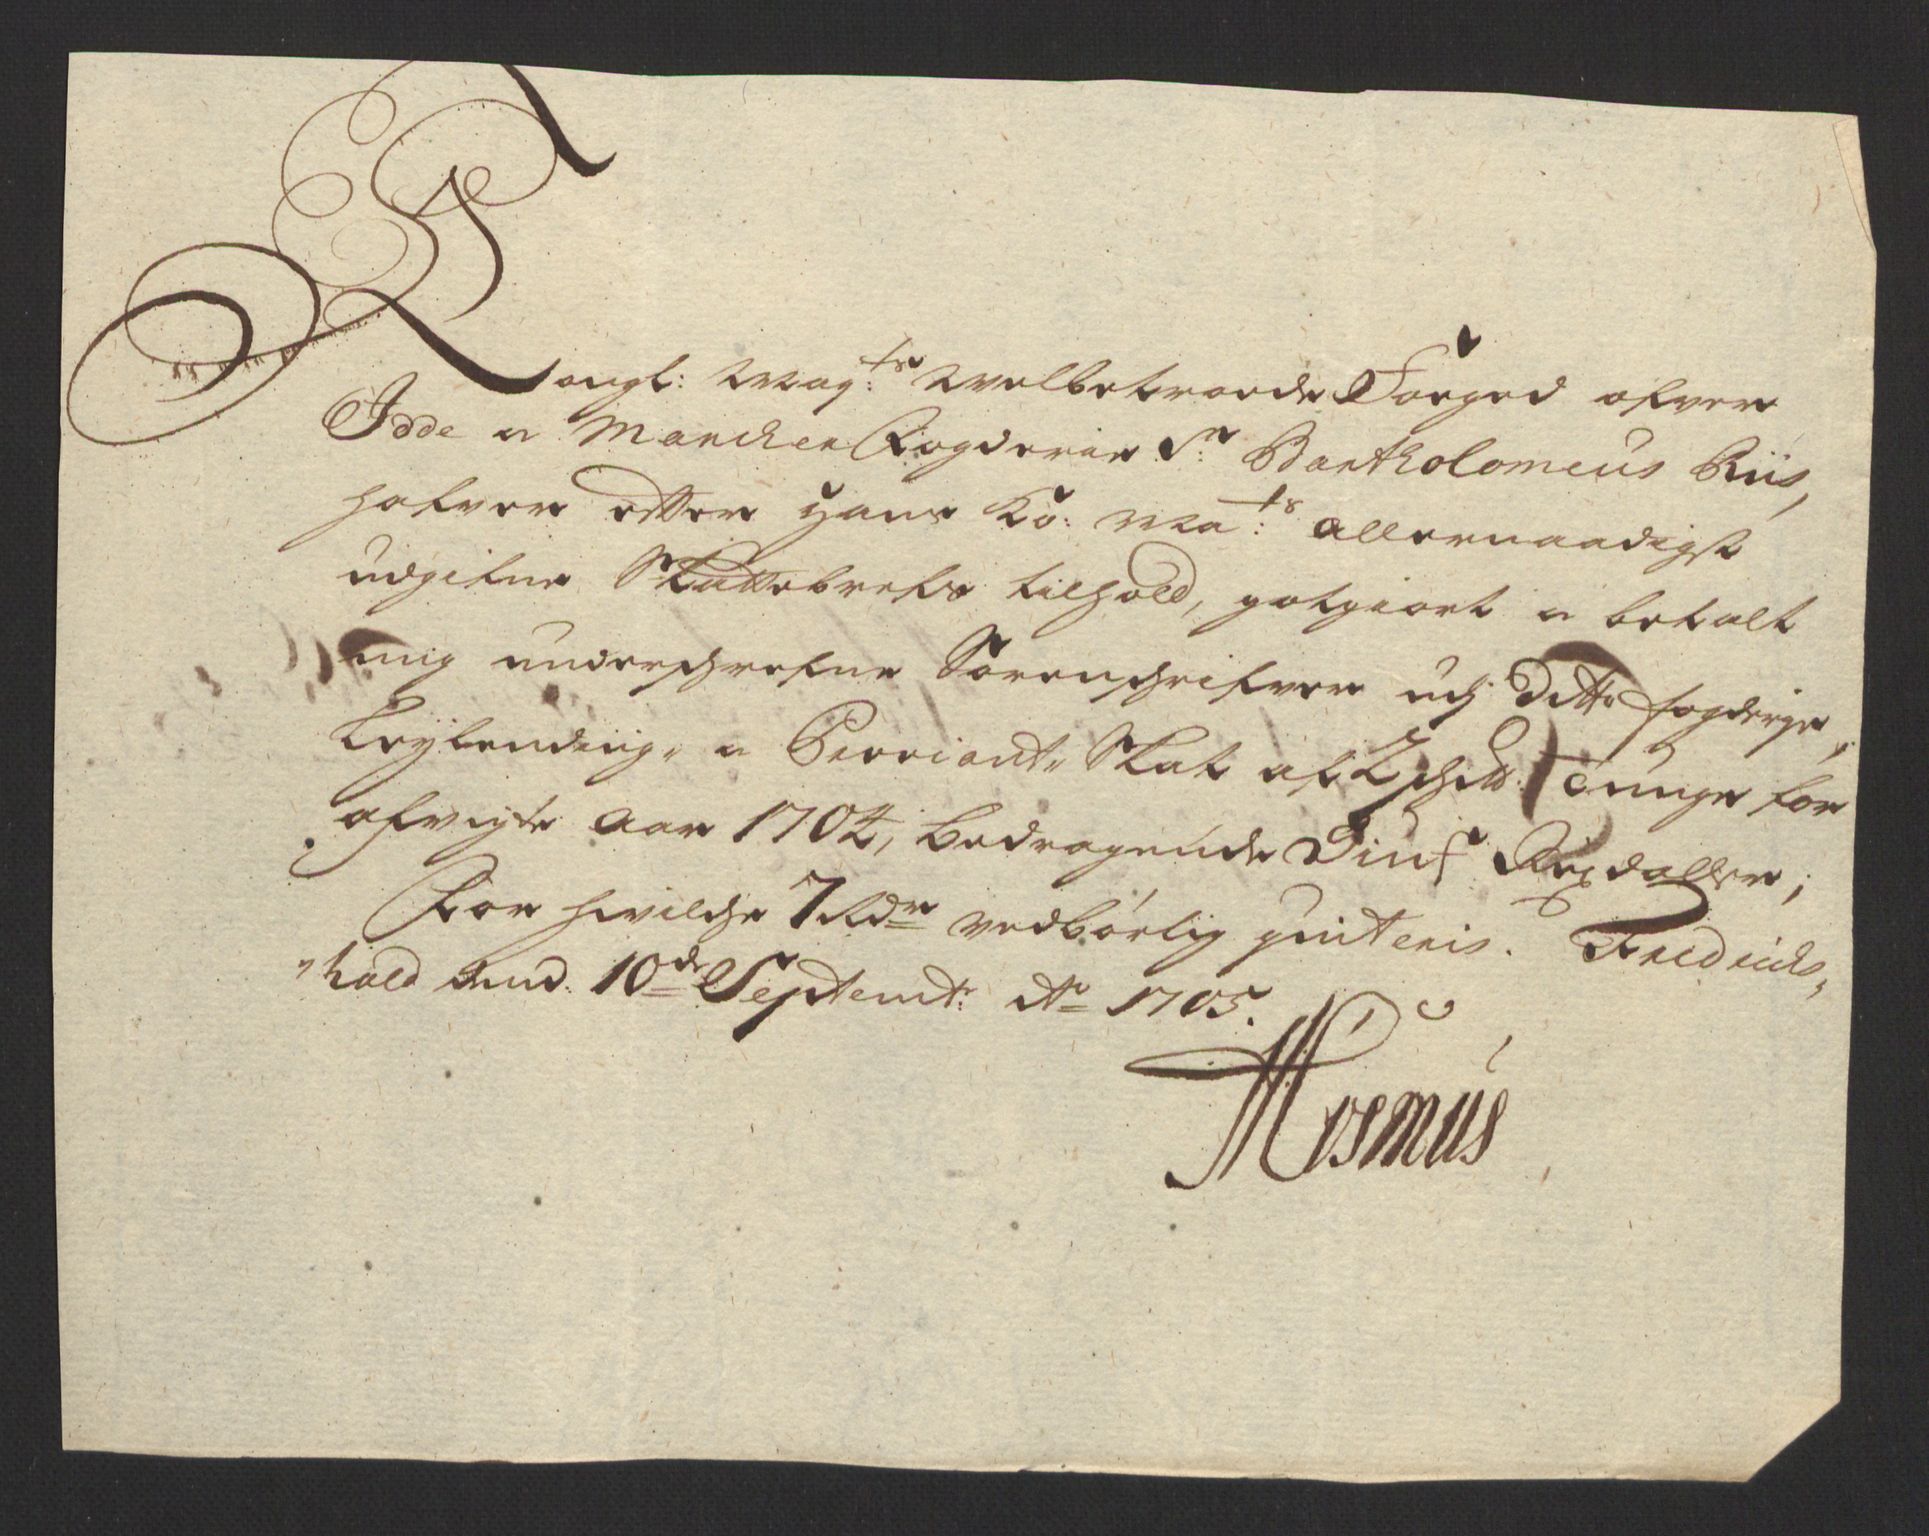 Kongl: May:ts Welbetroede Foeged ofver
Idde a Marcker Fogderie Sr Bartholomeus Riis,
hafver efter Hans Ko: Ma:ts allernaadigst
udgifne Skattebrefs tilhold, gotgiort a betalt
mig underschrefne Sorenschrifver udj ditto fogderje,
Leylending- a Proviant- Skat af 2 schll: Tunge for
afvigte Aar 1704, bedragende Siuf Rixdaller;
For hvilche 7 Rdr vedbørlig quiteris. Fridrichs-
-hald dend 10de Septembr: Ao 1705.
Mosmus